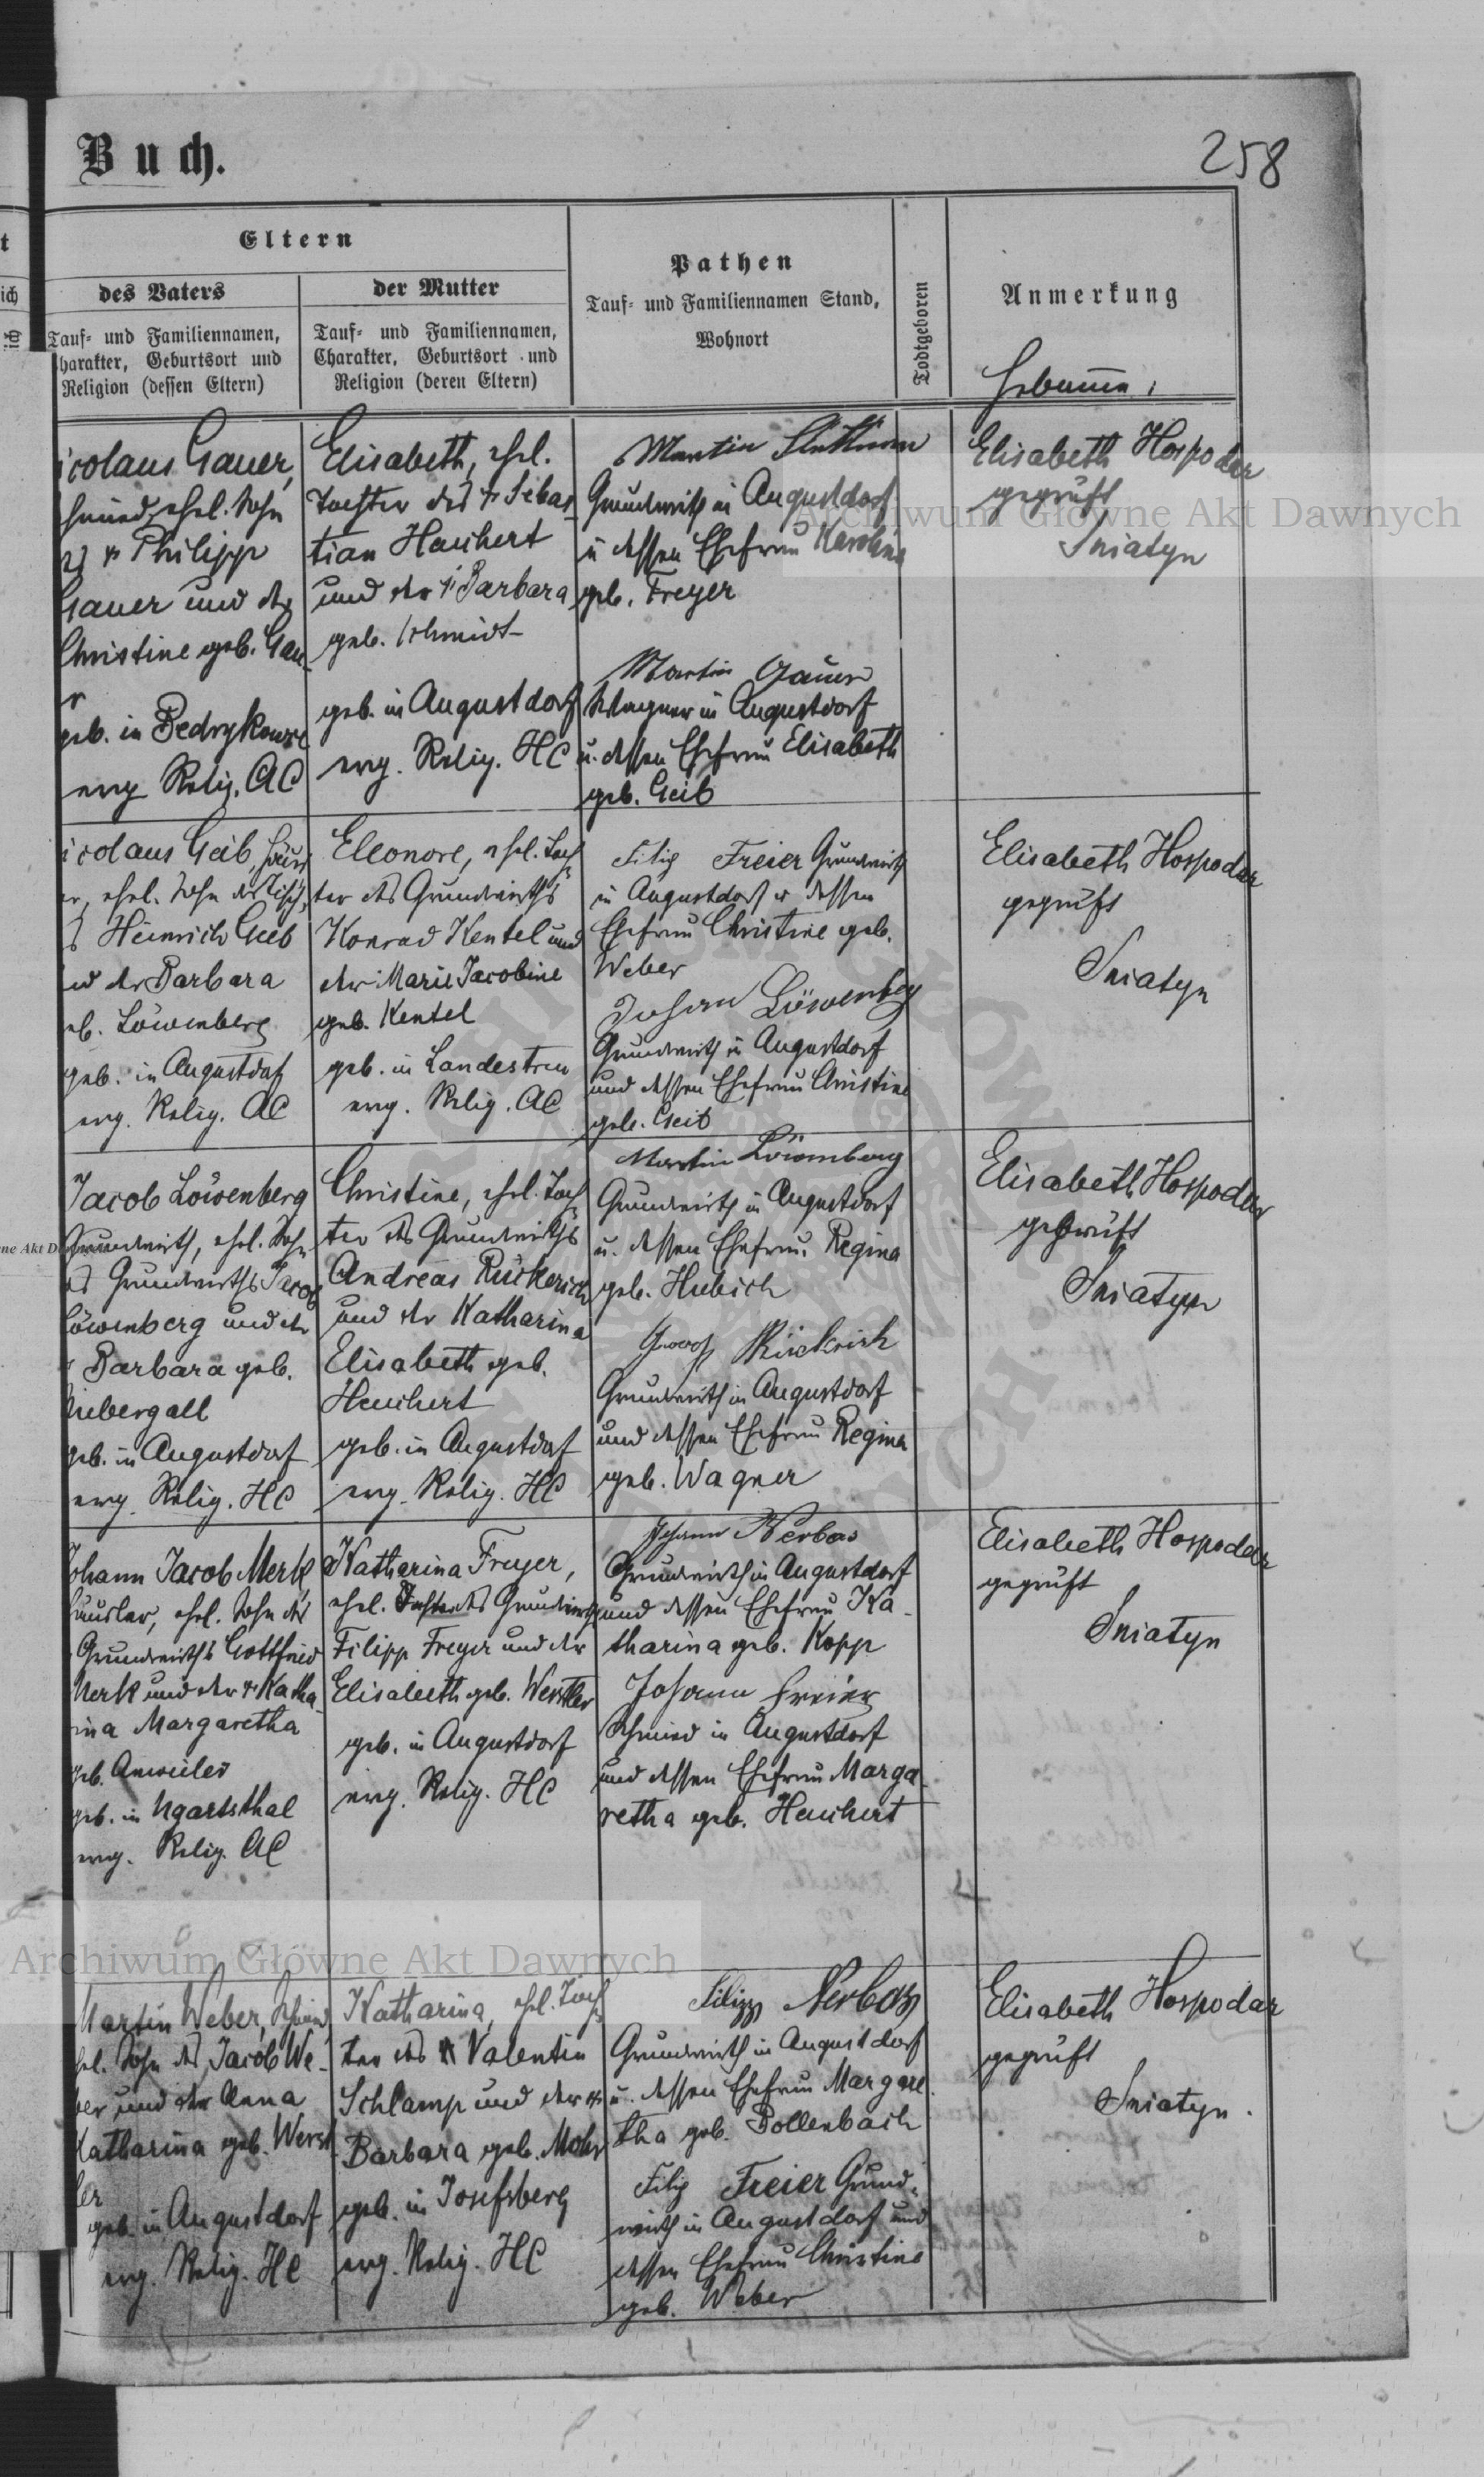 Buch.
258
Eltern
des Vaters
Tauf- und Familiennamen,
Charakter, Geburtsort und
Religion (dessen Eltern)
der Mutter
Tauf- und Familiennamen,
Charakter, Geburtsort und
Religion (deren Eltern)
Pathen
Tauf- und Familiennamen Stand,
Wohnort
Todtgeboren
Anmerkung
Hebamme:
icolaus Gauer,
hmied, ehel. Sohn
Philipp
Gauer und der
Christine geb. Gau-
r
geb. in Bedrykowce
evg. Relig. AC
Elisabeth, ehel.
Tochter des † Sebas-
tian Heuchert
und der † Barbara
geb. Schmidt
geb. in Augustdorf
evg. Relig. HC
Martin
Grundwirth in Augustdorf
u dessen Ehefrau Karoline
geb. Freyer
Martin Gauer
Wagner in Augustdorf
u. dessen Ehefrau Elisabeth
geb. Geib
Elisabeth Hospodar
geprüft
Sniatyn
icolaus Geib, Häus
er, ehel. Sohn des
Heinrich Geib
nd der Barbara
eb. Löwenberg
geb. in Augustdorf
evg. Relig. AC
Eleonore, ehel. Toch-
ter des Grundwirths
Konrad Kentel und
der Marie Jacobine
geb. Kentel
geb. in Landestreu
evg. Relig. AC
Filip Freier Grundwirth
in Augustdorf u dessen
Ehefrau Christine geb.
Weber
Johann Löwenberg
Grundwirth in Augustdorf
und dessen Ehefrau Christine
geb. Geib
Elisabeth Hospodar
geprüft
Sniatyn
Jacob Löwenberg
Grundwirth, ehel. Sohn
es Grundwirths Jacob
Löwenberg und der
Barbara geb.
Niebergall
geb. in Augustdorf
evg. Relig. HC
Christine, ehel. Toch-
ter des Grundwirths
Andreas Rückerich
und der Katharina
Elisabeth geb.
Heuchert
geb. in Augustdorf
evg. Relig. HC
Martin Löwenberg
Grundwirth in Augustdorf
u. dessen Ehefrau Regina
geb. Hubich
Jacob Rückrich
Grundwirth in Augustdorf
und dessen Ehefrau Regina
geb. Wagner
Elisabeth Hospodar
geprüft
Sniatyn
Johann Jacob Merk
Häusler, ehel. Sohn des
Grundwirths Gottfried
Merk und der † Katha-
rina Margaretha
geb. Anweiler
geb. in Ugartsthal
evg. Relig. AC
Katharina Freyer,
ehel. Tochter des Grundwirths
Filipp Freyer und der
Elisabeth geb. Werstler
geb. in Augustdorf
evg. Relig. HC
Johann Nerbas
Grundwirth in Augustdorf
und dessen Ehefrau Ka-
tharina geb. Kopp
Johann Freier
Schmied in Augustdorf
und dessen Ehefrau Marga-
retha geb. Heuchert
Elisabeth Hospodar
geprüft
Sniatyn
Martin Weber, Schmied
hel. Sohn des Jacob We-
ber und der Anna
Katharina geb. Werst-
ler
geb. in Augustdorf
evg. Relig. HC
Katharina, ehel. Toch-
ter des † Valentin
Schlamp und der †
Barbara geb. Mohr
geb. in Josefsberg
evg. Relig. HC
Filipp Nerbas
Grundwirth in Augustdorf
u. dessen Ehefrau Margare-
tha geb. Bollenbach
Filip Freier Grund-
wirth in Augustdorf und
dessen Ehefrau Christine
geb. Weber
Elisabeth Hospodar
geprüft
Sniatyn.
Archiwum Główne Akt Dawnych
Archiwum Główne Akt Dawnych